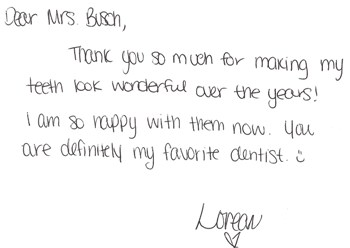 Dear Mrs. Busch,
Thank you so much for making my
teeth look wonderful over the years!
I am so happy with them now. You
are definitely my favorite dentist. :)
Lorean